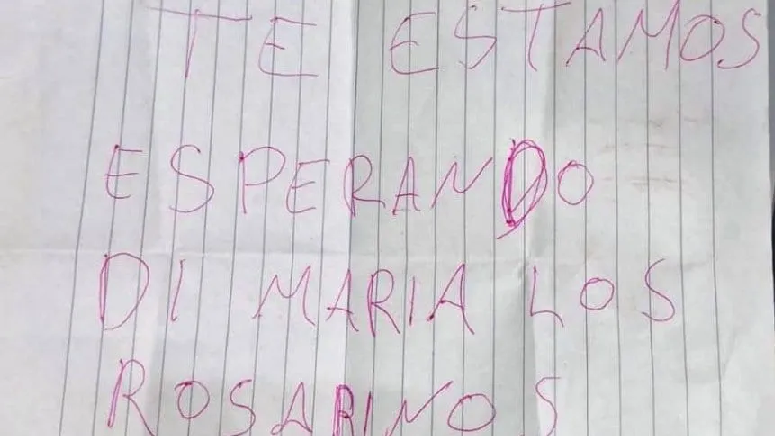 TE ESTAMOS
ESPERANDO
DI MARIA LOS
ROSARINOS